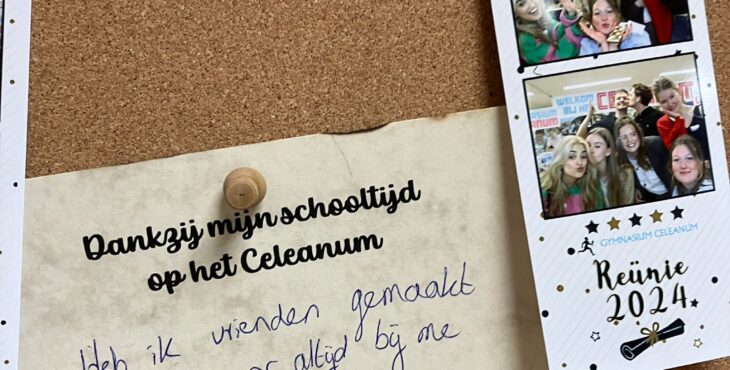 Dankzij mijn schooltijd
op het Celeanum
Heb ik vrienden gemaakt
altijd bij me
WELKOM
BIJ HET
GYMNASIUM CELEANUM
Reünie
2024